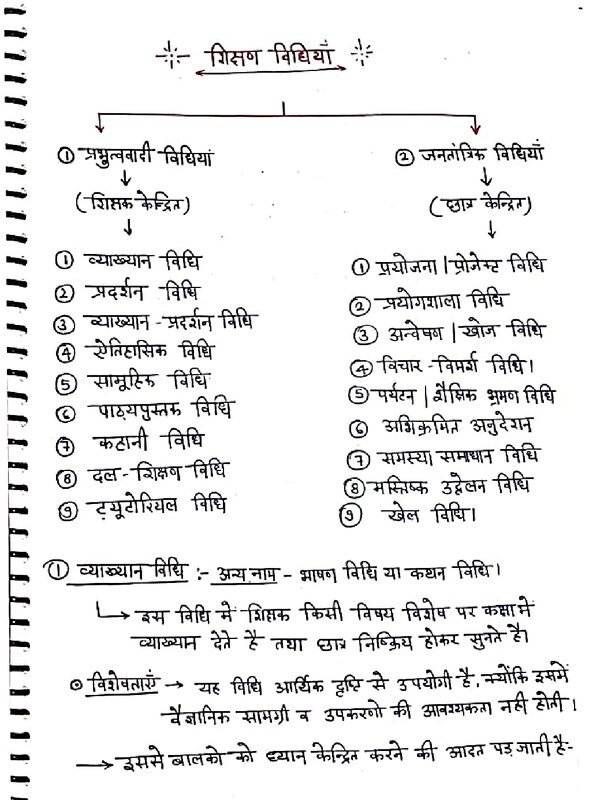 शिक्षण विधियाँ
① प्रभुत्ववादी विधियां
② जनतांत्रिक विधियाँ
(शिक्षक केन्द्रित)
(छात्र केन्द्रित)
① व्याख्यान विधि
② प्रदर्शन विधि
③ व्याख्यान-प्रदर्शन विधि
④ ऐतिहासिक विधि
⑤ सामूहिक विधि
⑥ पाठ्यपुस्तक विधि
⑦ कहानी विधि
⑧ दल-शिक्षण विधि
⑨ ट्यूटोरियल विधि
① प्रयोजना|प्रोजेक्ट विधि
② प्रयोगशाला विधि
③ अन्वेषण|खोज विधि
④ विचार-विमर्श विधि।
⑤ पर्यटन|शैक्षिक भ्रमण विधि
⑥ अभिक्रमित अनुदेशन
⑦ समस्या समाधान विधि
⑧ मस्तिष्क उद्वेलन विधि
⑨ खेल विधि।
① व्याख्यान विधि :- अन्य नाम - भाषण विधि या कथन विधि।
इस विधि में शिक्षक किसी विषय विशेष पर कक्षा में
व्याख्यान देते है तथा छात्र निष्क्रिय होकर सुनते है।
⊙ विशेषताएँ → यह विधि आर्थिक दृष्टि से उपयोगी है, क्योंकि इसमें
वैज्ञानिक सामग्री व उपकरणो की आवश्यकता नही होती।
→ इससे बालको को ध्यान केन्द्रित करने की आदत पड़ जाती है:-